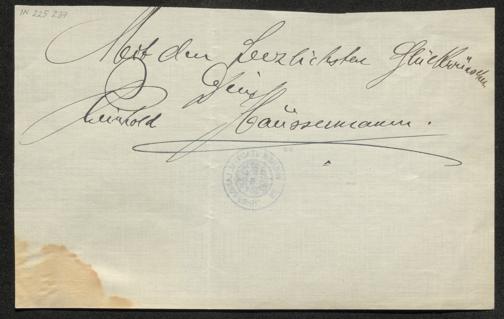 IN 225.237
Mit den herzlichsten Glückwünschen
Dein
Reinhold Häussermann.